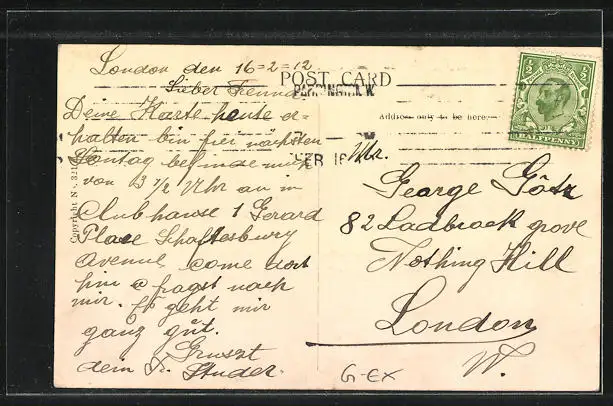 London den 16-2-12
Lieber Freund
Deine Karte heute er-
halten bin frei nächsten
Sontag befinde mich
von 3 1/2 Uhr an in
Clubhause 1 Gerard
Place Schaftesbury
Avenue come dort
hin & fragst nach
mir. Es geht mir
ganz gut.
Grusst
dem Fr. Studer.
POST CARD
PADDINGTON. W
FEB 16
Address only to be here.
Copyright No. 321
½ ½
HALFPENNY
Mr.
George Götz
82 Ladbrock grove
Nothing Hill
London
W.
G-EX